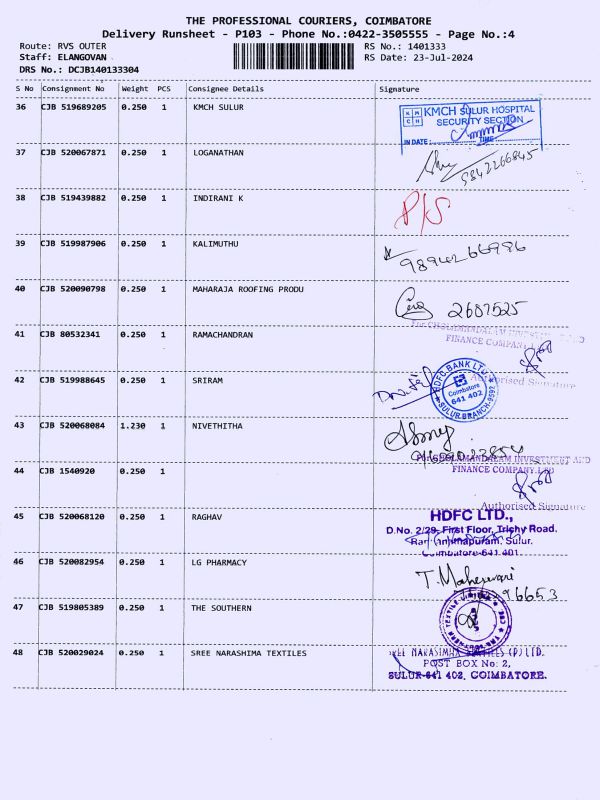 THE PROFESSIONAL COURIERS, COIMBATORE
Delivery Runsheet - P103 - Phone No.:0422-3505555 - Page No.:4
Route: RVS OUTER
RS No.: 1401333
Staff: ELANGOVAN
RS Date: 23-Jul-2024
DRS No.: DCJB140133304
S No Consignment No Weight PCS Consignee Details Signature
36 CJB 519689205 0.250 1 KMCH SULUR
KMCH SULUR HOSPITAL
SECURITY SECTION
IN DATE: TIME
37 CJB 520067871 0.250 1 LOGANATHAN
9842266845
38 CJB 519439882 0.250 1 INDIRANI K
39 CJB 519987906 0.250 1 KALIMUTHU
40 CJB 520090798 0.250 1 MAHARAJA ROOFING PRODU
2607525
For CHOLAMANDALAM INVESTMENT AND
FINANCE COMPANY LTD
41 CJB 80532341 0.250 1 RAMACHANDRAN
Authorised Signature
42 CJB 519988645 0.250 1 SRIRAM
HDFC BANK LTD.
Coimbatore
641 402
SULUR BRANCH-9592
43 CJB 520068084 1.230 1 NIVETHITHA
For CHOLAMANDALAM INVESTMENT AND
FINANCE COMPANY LTD
44 CJB 1540920 0.250 1
Authorised Signature
45 CJB 520068120 0.250 1 RAGHAV
HDFC LTD.,
D.No. 2/29, First Floor, Trichy Road.
Sulur.
Coimbatore-641 401.
46 CJB 520082954 0.250 1 LG PHARMACY
T. Maheswari
47 CJB 519805389 0.250 1 THE SOUTHERN
48 CJB 520029024 0.250 1 SREE NARASHIMA TEXTILES
SREE NARASIMHA TEXTILES (P) LTD.
POST BOX No: 2,
SULUR-641 402, COIMBATORE.